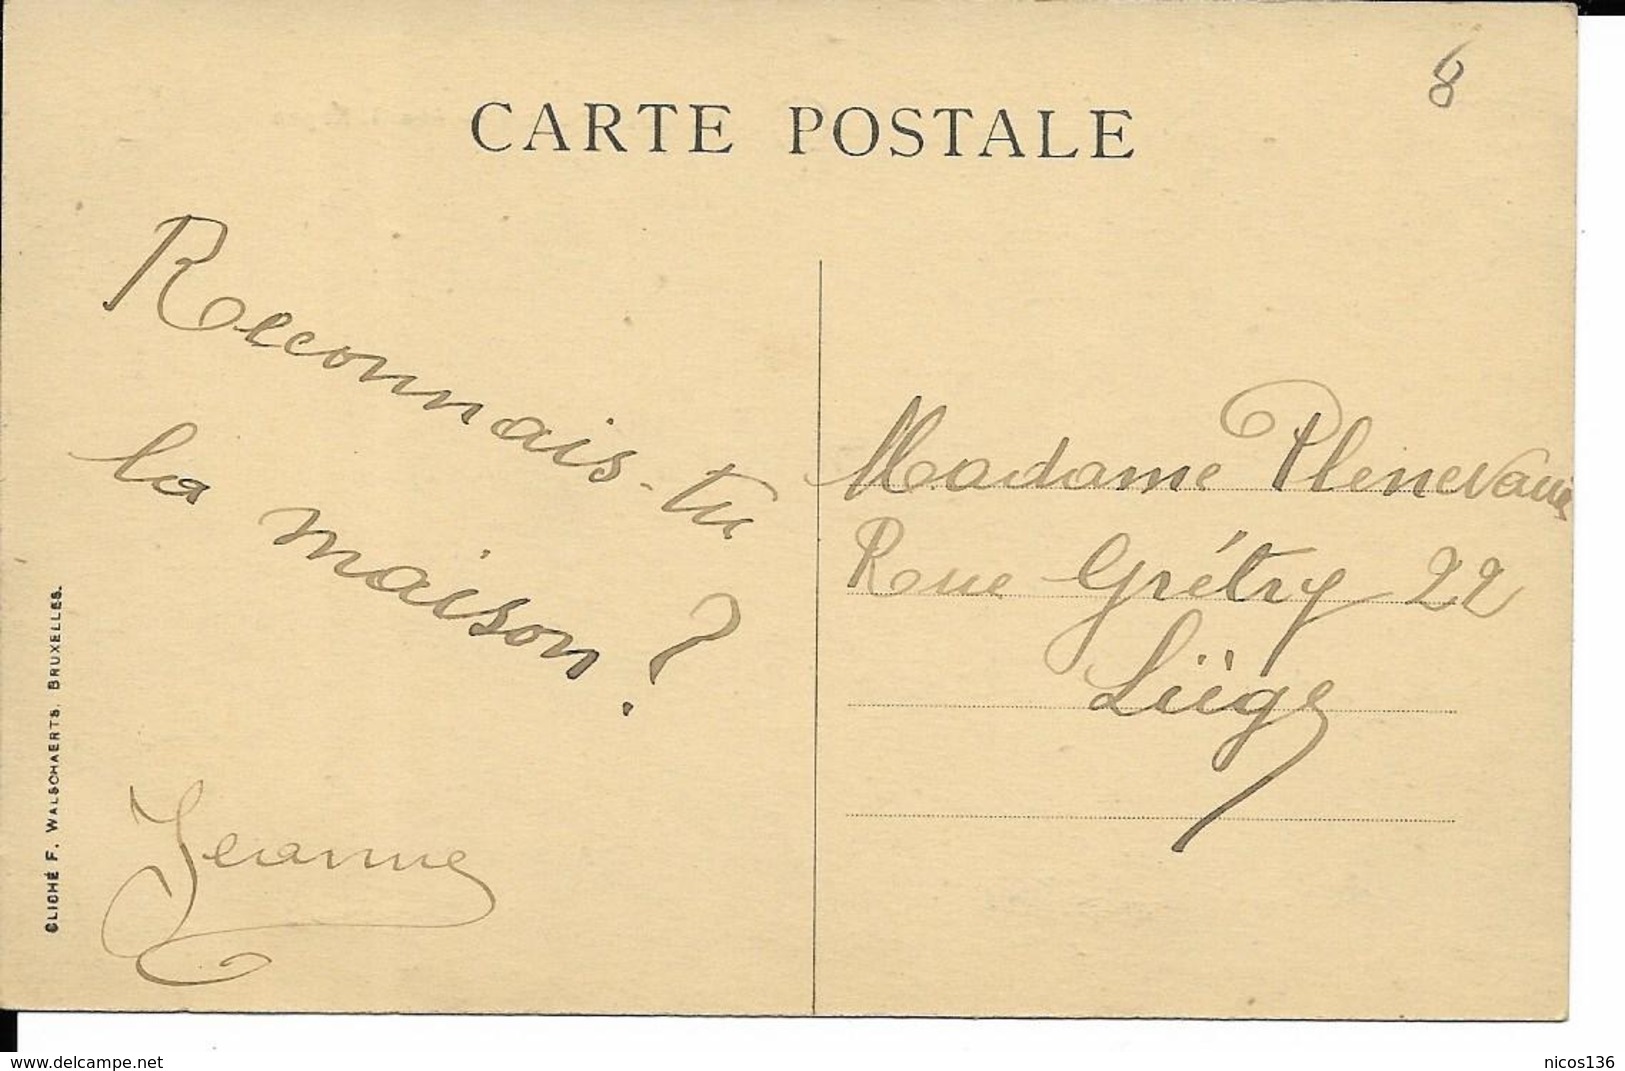 CARTE POSTALE
8
Reconnais-tu
la maison?
Jeanne
Madame Plenevaux
Rue Grétry 22
Liège
CLICHÉ F. WALSCHAERTS. BRUXELLES.
www.delcampe.net
nicos136